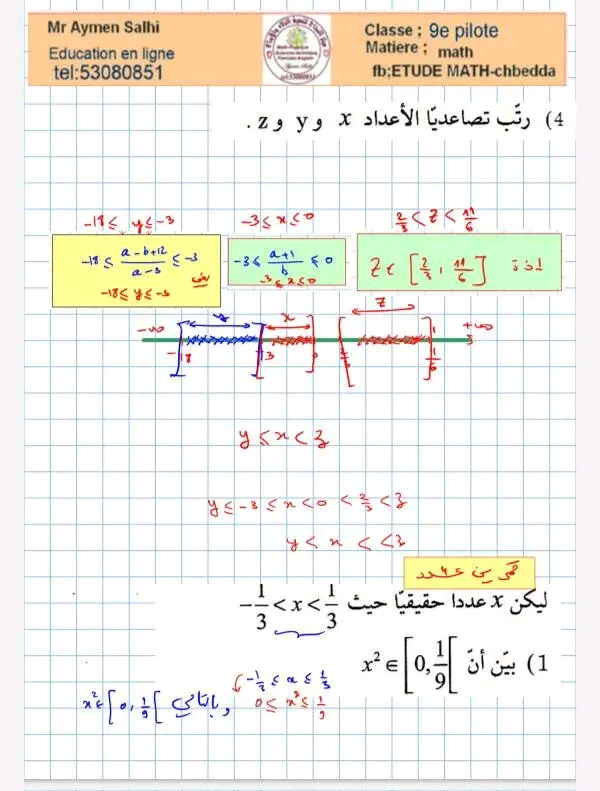 Mr Aymen Salhi
Education en ligne
tel:53080851
Classe ; 9e pilote
Matiere ; math
fb;ETUDE MATH-chbedda
4) رتّب تصاعديّا الأعداد x و y و z .
-18 ≤ y ≤ -3
-3 ≤ x ≤ 0
2/3 < z < 11/6
-18 ≤ (a-b+12)/(a-3) ≤ -3
-18 ≤ y ≤ -3
-3 ≤ (a+1)/b ≤ 0
-3 ≤ x ≤ 0
اذن z ∈ [2/3, 11/6]
y x z
-∞ -18 -3 0 2/3 11/6 +∞
y ≤ x < z
y ≤ -3 ≤ x < 0 < 2/3 < z
y < x < < z
تمرين عدد
ليكن x عددا حقيقيّا حيث -1/3 < x < 1/3
1) بيّن أنّ x² ∈ [0, 1/9[
-1/3 ≤ x ≤ 1/3
0 ≤ x² ≤ 1/9
وبالتالي x² ∈ [0, 1/9[